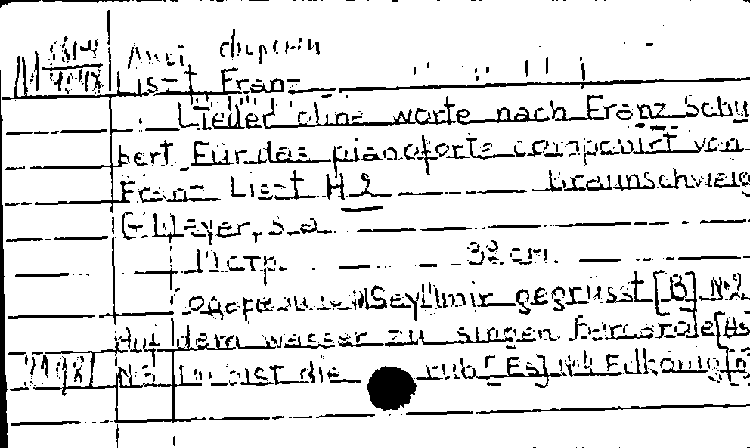 List, Franz
Lieder ohne worte nach Franz Schu
bert Für das pianoforte componirt von
Franz Liszt H 2 Braunschweig
G. Meyer, s.a.
стр. 32 cm.
Sey mir gegrüsst [B] №2
Auf dem wasser zu singen barcarole [As
N3 Du bist die ruh [Es] №4 Erlkönig [g